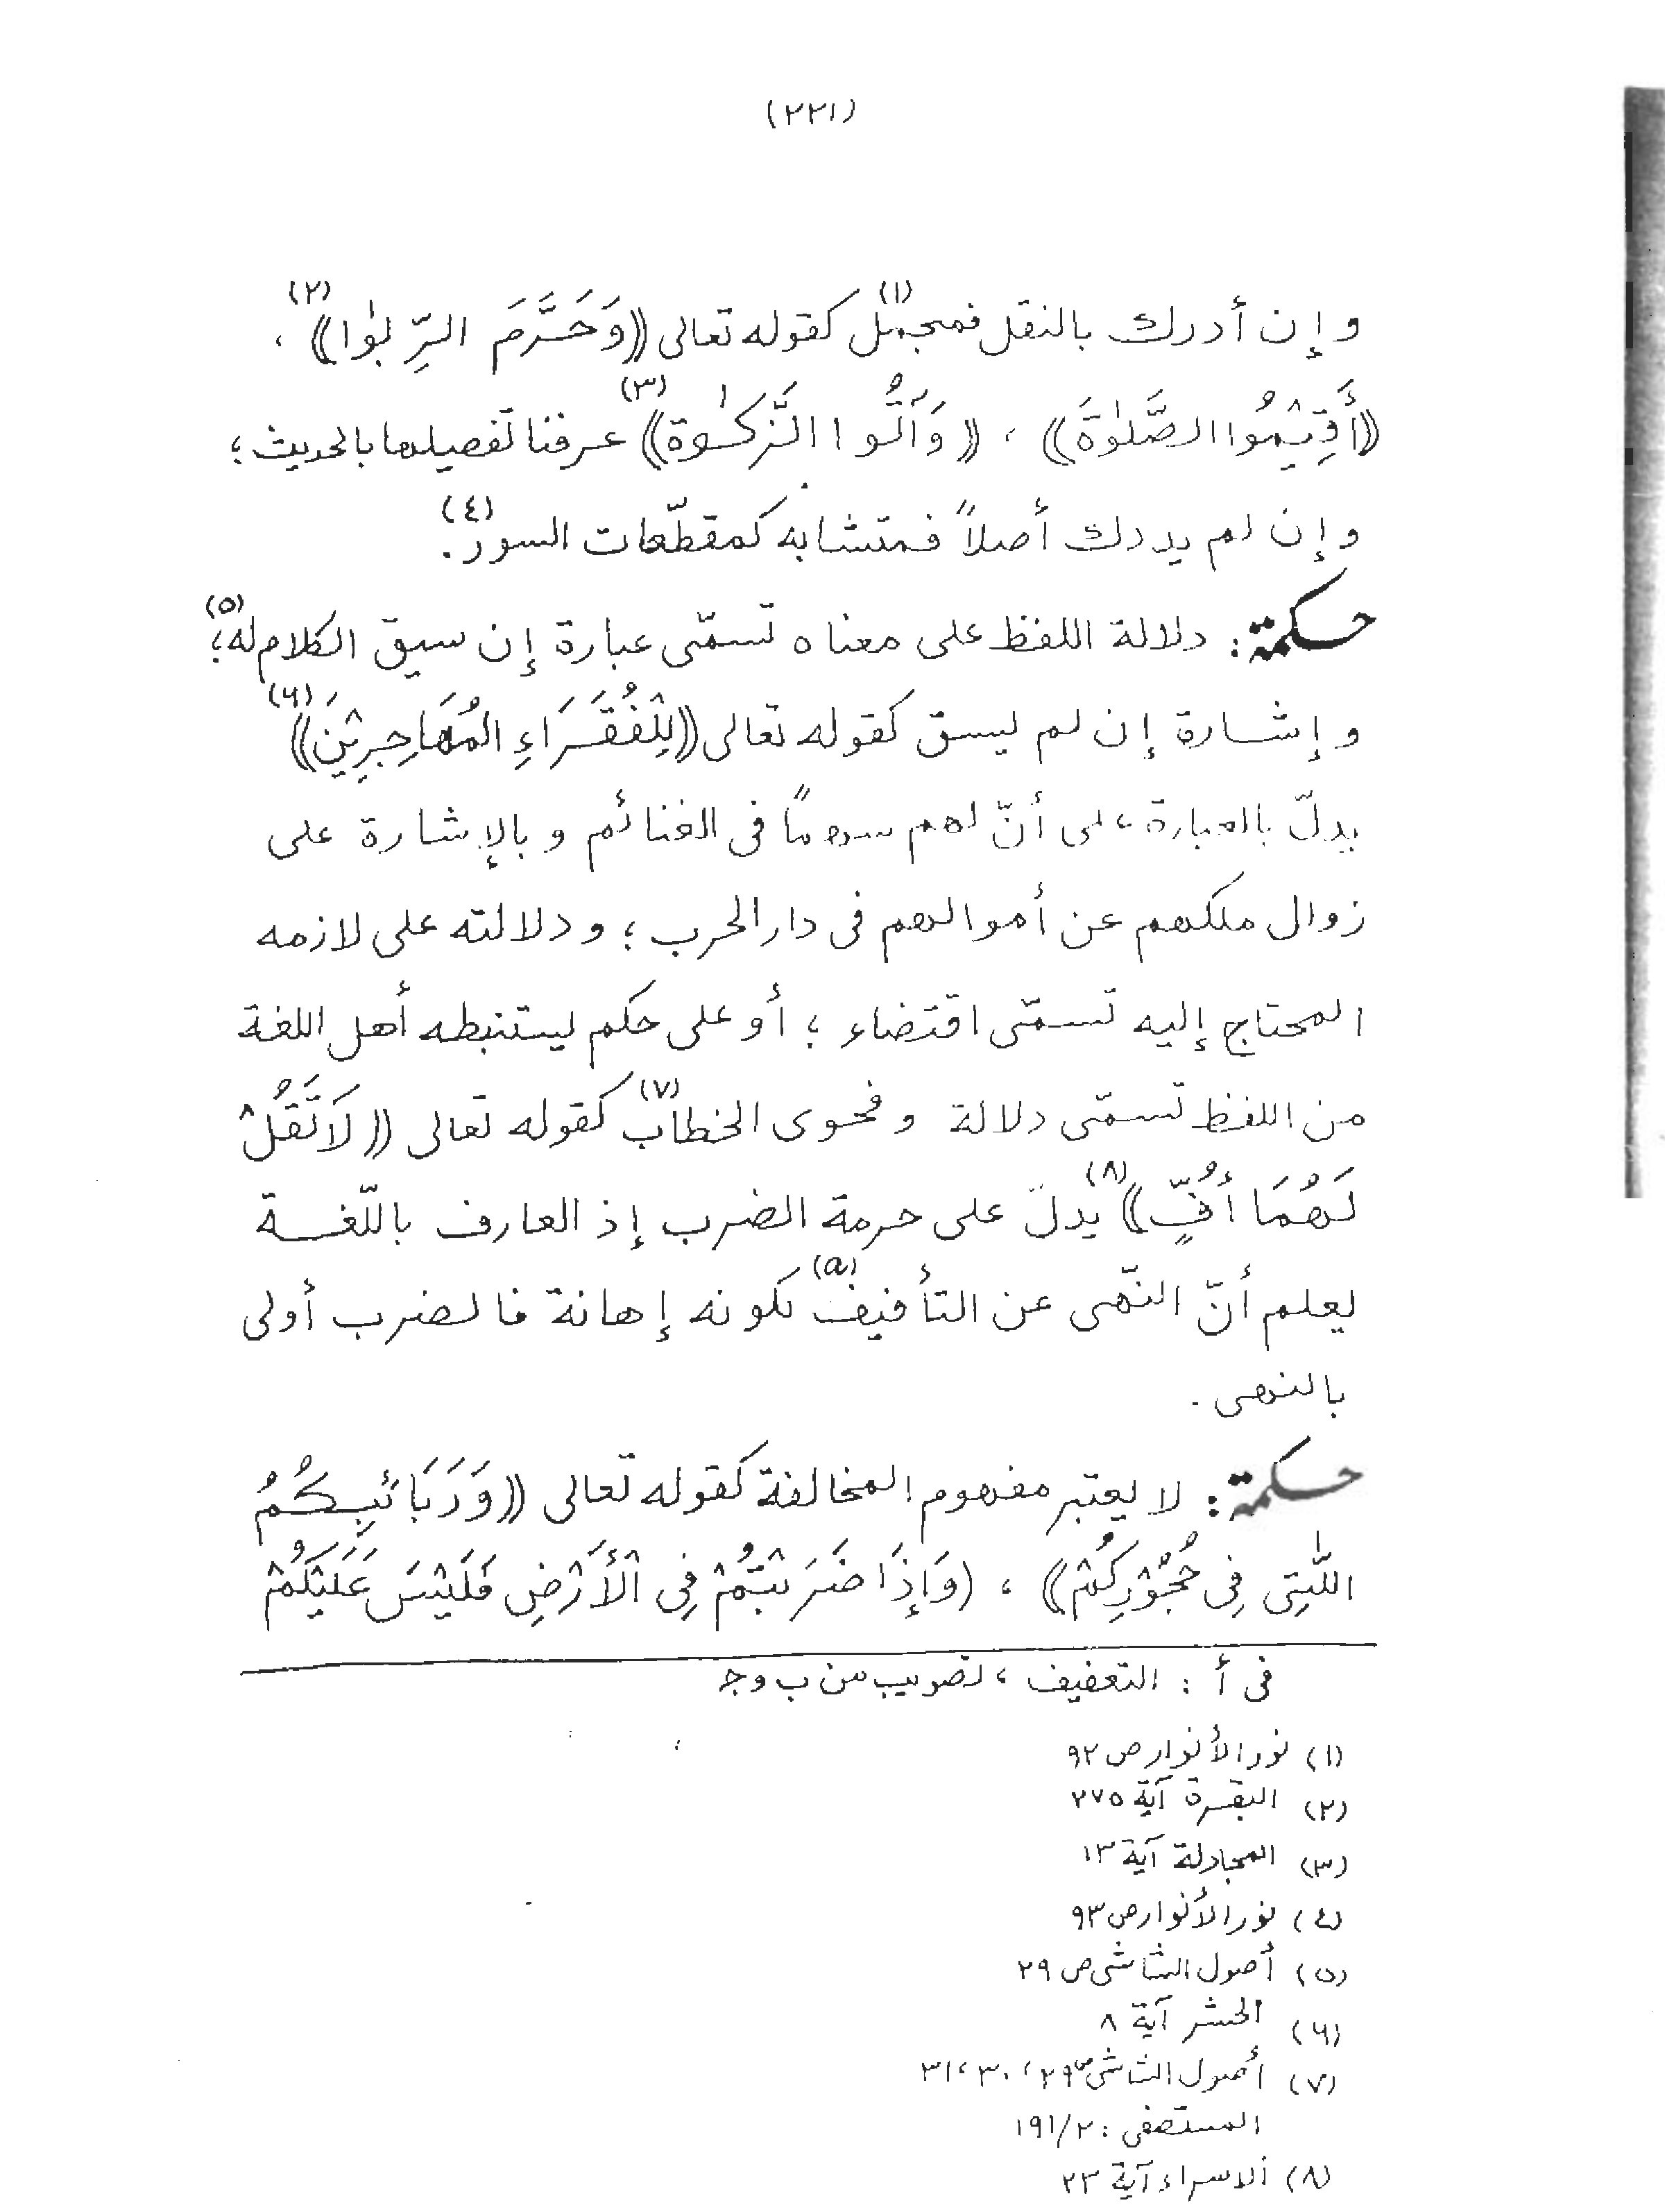 (٢٢١)
وإن أدرك بالنقل فمجمل(١) كقوله تعالى ((وَحَرَّمَ الرِّبٰوا))(٢) ،
((أَقِيْمُوا الصَّلٰوةَ)) ، ((وَآتُوا الزَّكٰوة))(٣) عرفنا تفصيلها بالحديث ؛
وإن لم يدرك أصلاً فمتشابه كمقطّعات السور(٤).
حكمة : دلالة اللفظ على معناه تسمّى عبارة إن سيق الكلام له(٥)؛
وإشارة إن لم يسق كقوله تعالى ((لِلْفُقَرَاءِ المُهَاجِرِيْنَ))(٦)
يدلّ بالعبارة على أنّ لهم سهماً فى الغنائم و بالإشارة على
زوال ملكهم عن أموالهم فى دار الحرب ؛ ودلالته على لازمه
المحتاج إليه تسمّى اقتضاء ؛ أو على حكم يستنبطه أهل اللغة
من اللفظ تسمّى دلالة وفحوى الخطاب(٧) كقوله تعالى ((لَا تَقُلْ
لَهُمَا أُفٍّ))(٨) يدلّ على حرمة الضرب إذ العارف باللّغة
يعلم أنّ النّهى عن التأفيف(a) لكونه إهانة فالضرب أولى
بالنهى .
حكمة : لا يعتبر مفهوم المخالفة كقوله تعالى ((وَرَبَائِبِكُمُ
اللّٰتِى فِى حُجُوْرِكُمْ)) ، (وَإِذَا ضَرَبْتُمْ فِى الْأَرْضِ فَلَيْسَ عَلَيْكُمْ
فى أ : التعفيف ، تصويب من ب و ج
(١) نور الأنوار ص ٩٢
(٢) البقرة آية ٢٧٥
(٣) المجادلة آية ١٣
(٤) نور الأنوار ص ٩٣
(٥) أصول الشاشى ص ٢٩
(٦) الحشر آية ٨
(٧) أصول الشاشى ص ٢٩ ، ٣٠ ، ٣١
المستصفى : ٢/١٩١
(٨) الاسراء آية ٢٣